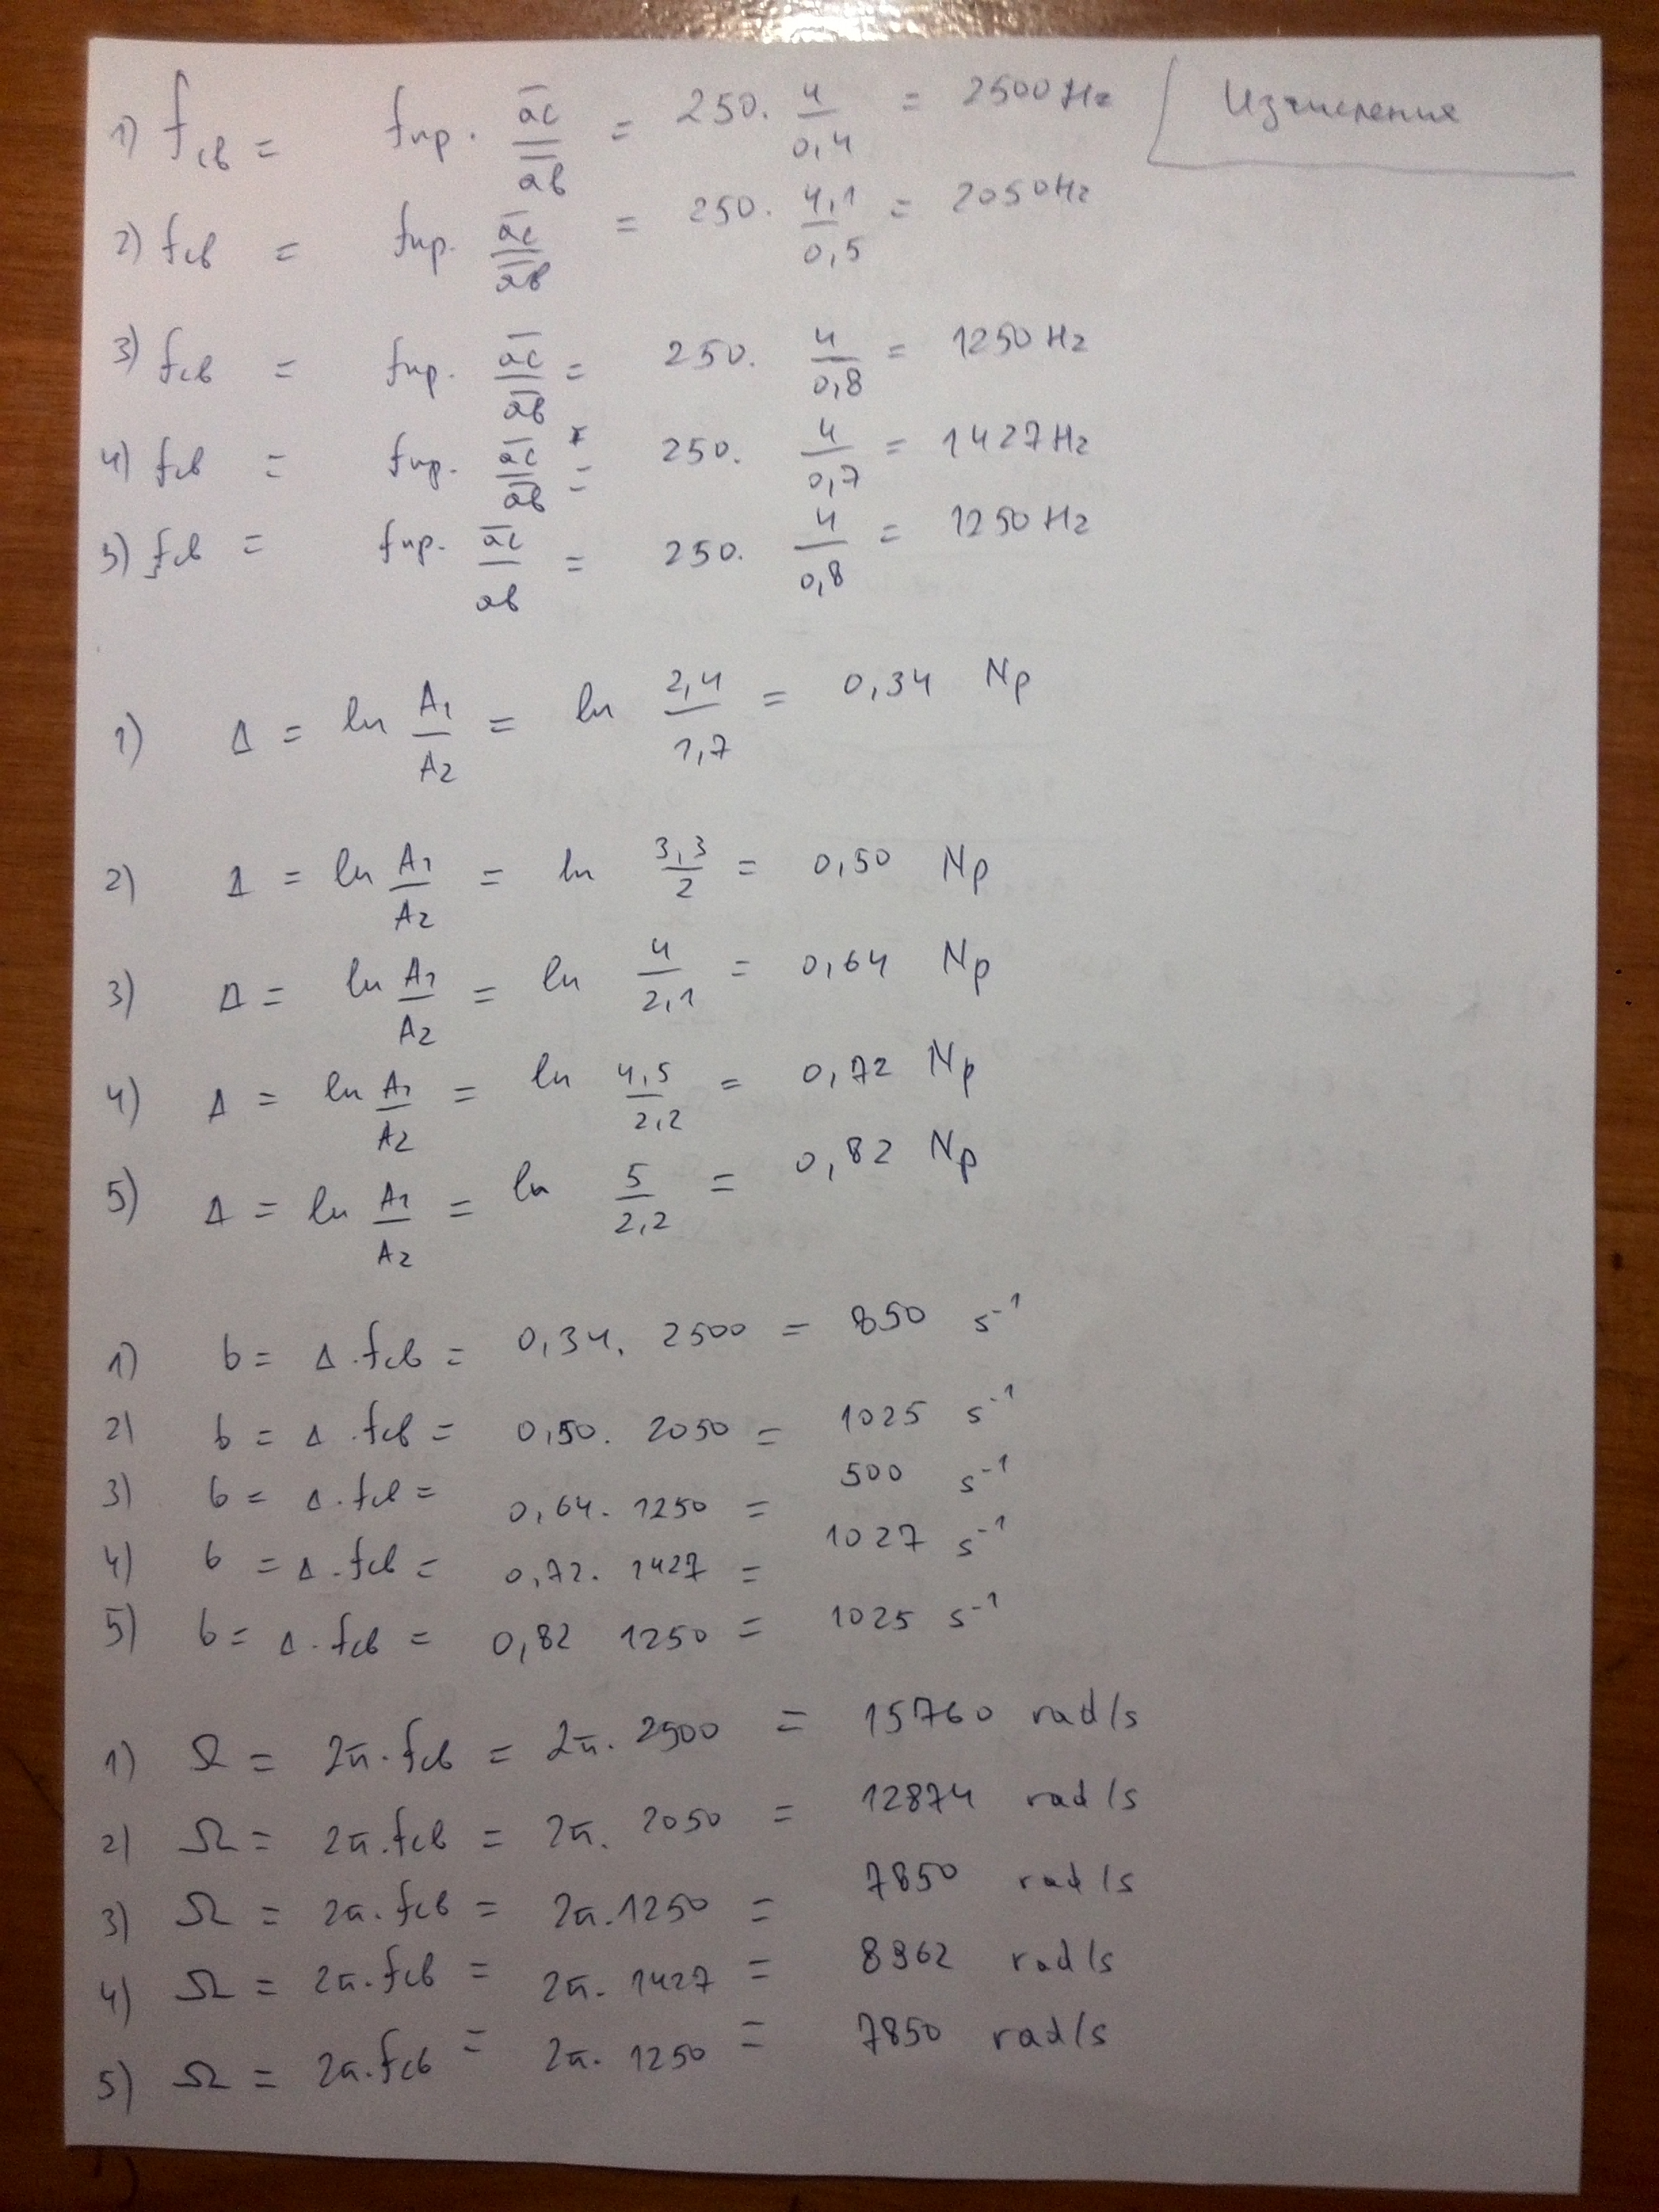 Изчисления
1) fсв = fпр. ac/ab = 250. 4/0,4 = 2500 Hz
2) fсв = fпр. ac/ab = 250. 4,1/0,5 = 2050 Hz
3) fсв = fпр. ac/ab = 250. 4/0,8 = 1250 Hz
4) fсв = fпр. ac/ab = 250. 4/0,7 = 1427 Hz
5) fсв = fпр. ac/ab = 250. 4/0,8 = 1250 Hz
1) Δ = ln A1/A2 = ln 2,4/1,7 = 0,34 Np
2) Δ = ln A1/A2 = ln 3,3/2 = 0,50 Np
3) Δ = ln A1/A2 = ln 4/2,1 = 0,64 Np
4) Δ = ln A1/A2 = ln 4,5/2,2 = 0,72 Np
5) Δ = ln A1/A2 = ln 5/2,2 = 0,82 Np
1) b = Δ.fсв = 0,34. 2500 = 850 s⁻¹
2) b = Δ.fсв = 0,50. 2050 = 1025 s⁻¹
3) b = Δ.fсв = 0,64. 1250 = 500 s⁻¹
4) b = Δ.fсв = 0,72. 1427 = 1027 s⁻¹
5) b = Δ.fсв = 0,82 1250 = 1025 s⁻¹
1) Ω = 2π.fсв = 2π. 2500 = 15760 rad/s
2) Ω = 2π.fсв = 2π. 2050 = 12874 rad/s
3) Ω = 2π.fсв = 2π.1250 = 7850 rad/s
4) Ω = 2π.fсв = 2π. 1427 = 8962 rad/s
5) Ω = 2π.fсв = 2π. 1250 = 7850 rad/s